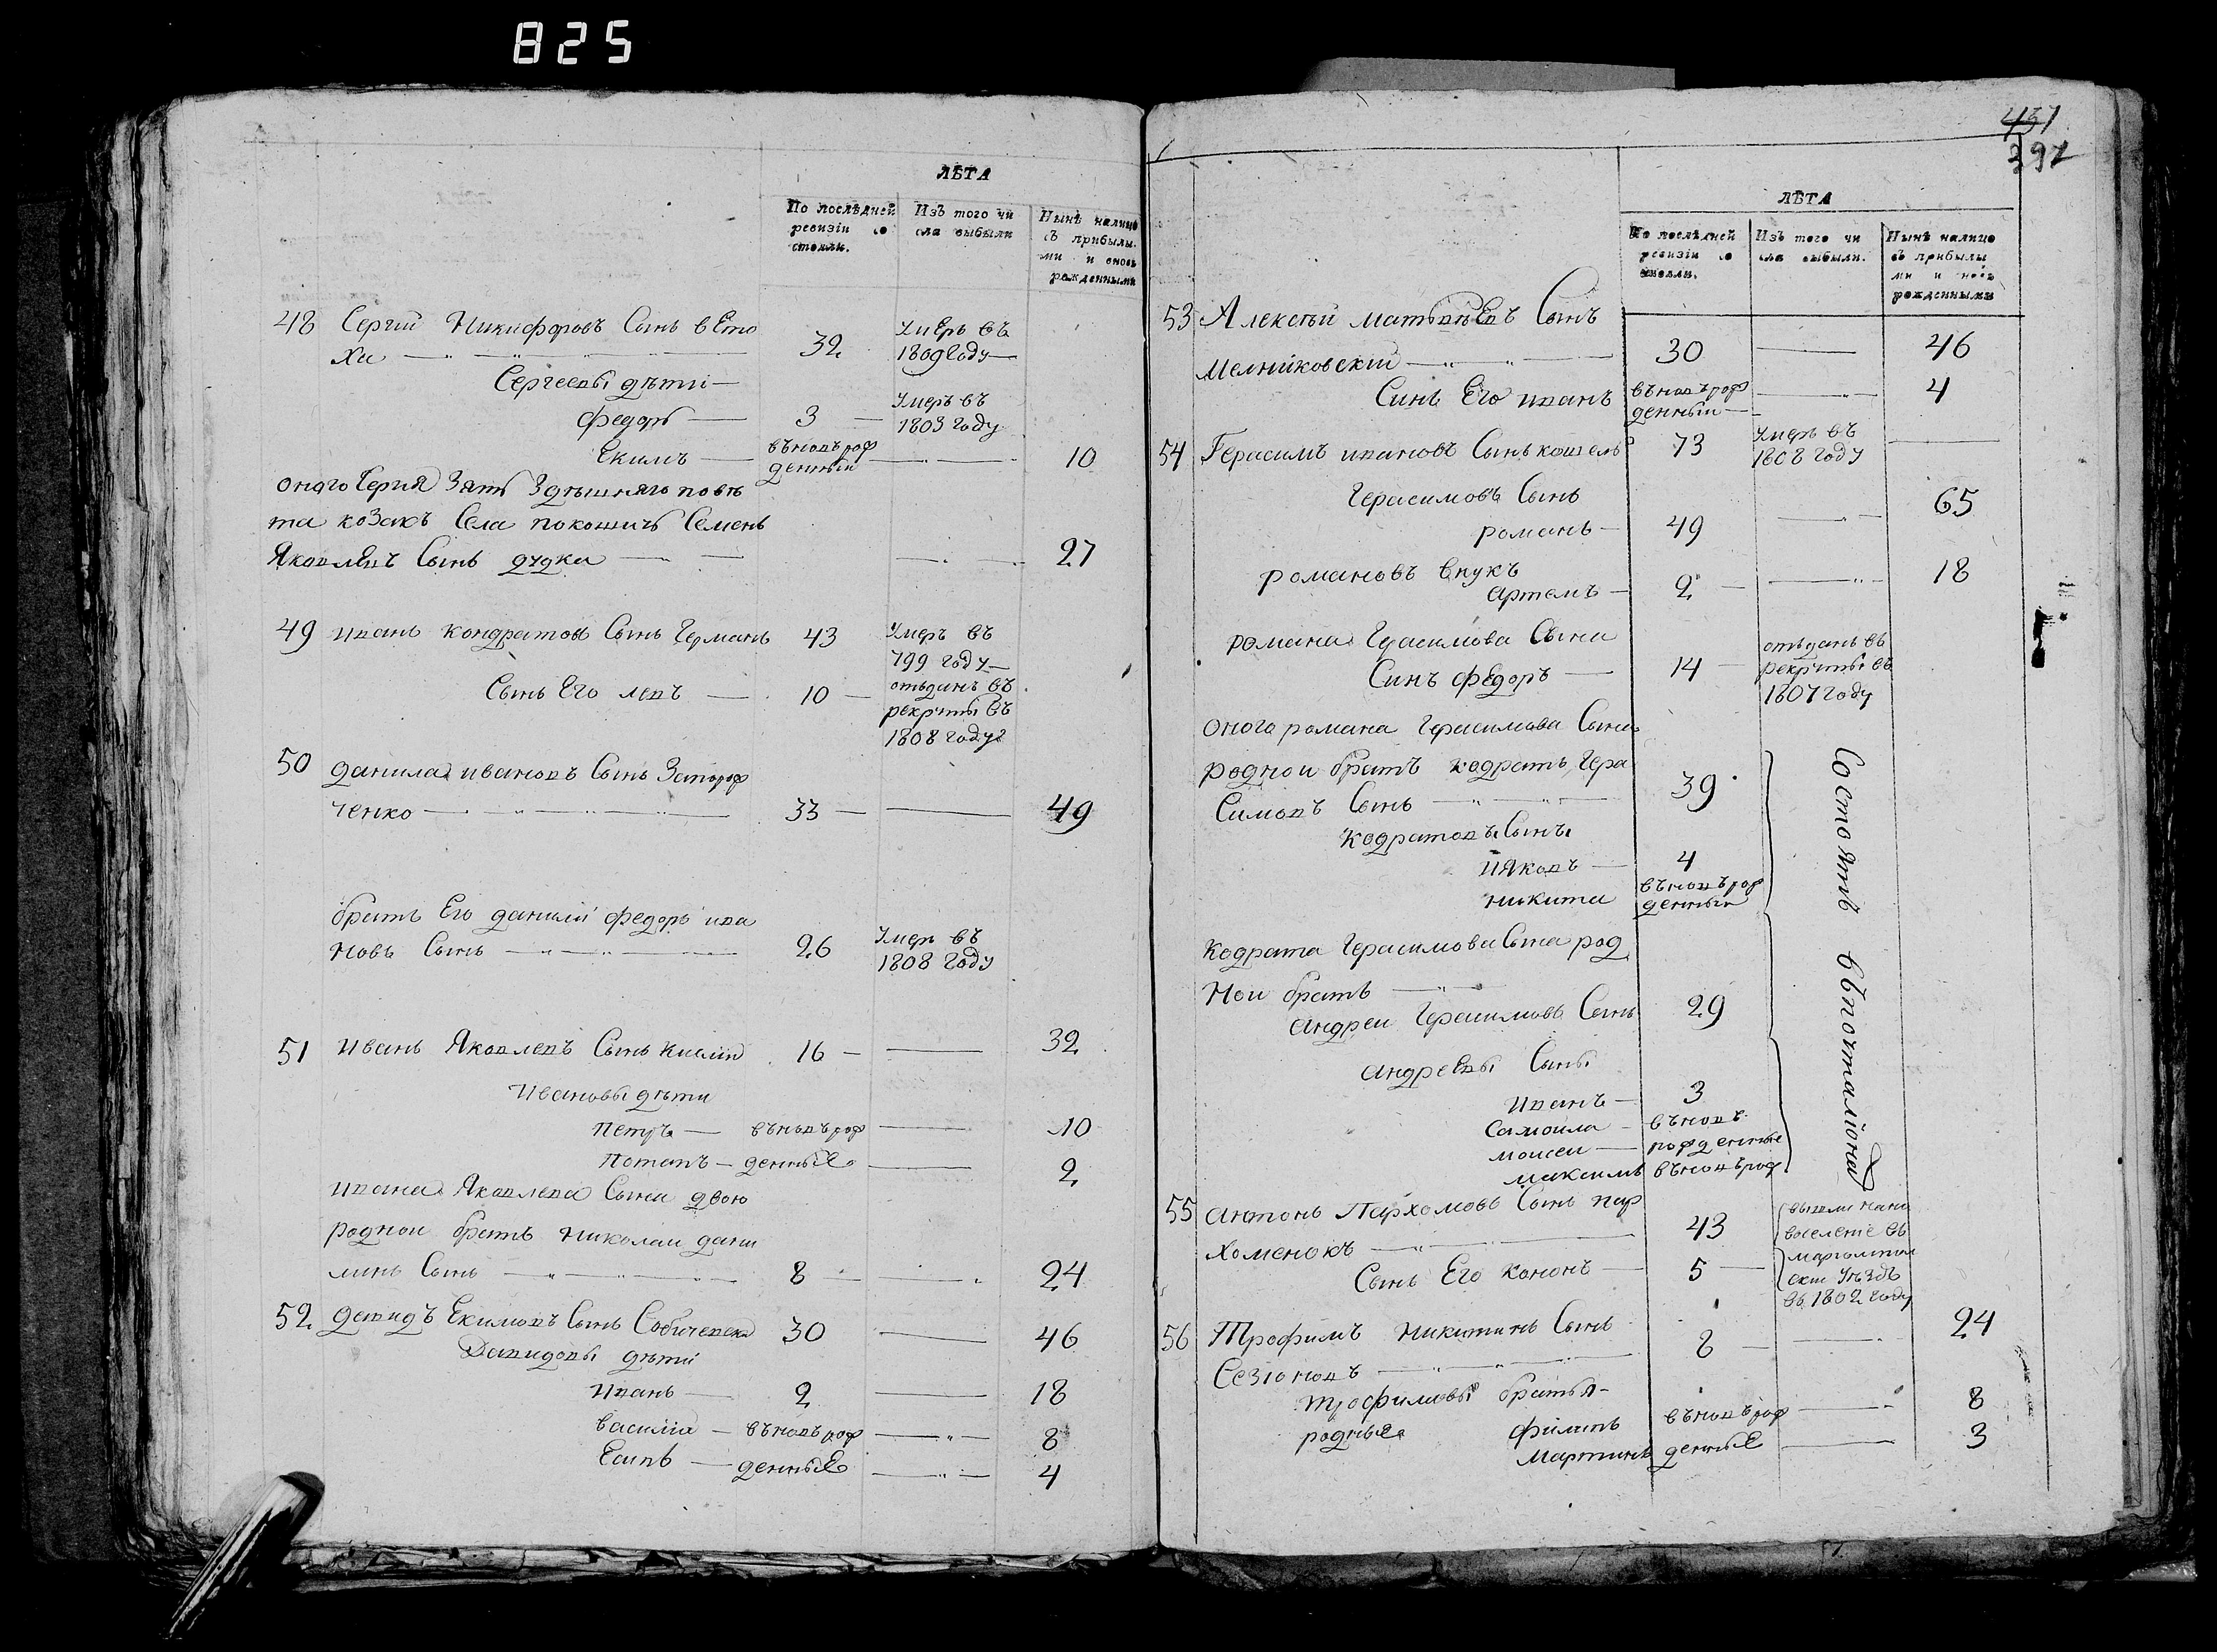 825
ЛѢТА
По послѣдней ревизіи со стояли.
Изъ того чи сла выбыли
Нынѣ налицо съ прибылы. ми и вновь рожденными
48 Сергий Никифоровъ Сынъ вЕто
ха 32 Умеръ въ 1809 году
Сергеевы дѣти
федоръ 3 Умеръ въ 1803 году
Екимъ вѣновъ рож денный 10
оного Сергия Зять Здѣшняго повѣ
та козакъ Села покошичъ Семенъ
Яковлевъ Сынъ дудка 27
49 иванъ кондратовъ Сынъ Германъ 43 Умеръ въ 799 году
Сынъ Его левъ 10 отъданъ въ рекруты въ 1808 году
50 данила ивановъ Сынъ
ченко 33 49
братъ Его данилы федоръ ива
новъ Сынъ 26 Умеръ въ 1808 году
51 иванъ Яковлевъ Сынъ 16 32
Ивановы дѣти
петръ вѣновъ рож 10
Потапъ денные 2
ивана Яковлева Сына двою
родной братъ николай дани
линъ Сынъ 8 24
52 демидъ Екимовъ Сынъ 30 46
Давидовы дѣти
иванъ 2 18
василий вѣновъ рож 8
Есипъ денные 4
451
391
ЛѢТА
По послѣдней ревизіи со стояли.
Изъ того чи сла выбыли.
Нынѣ налицо съ прибылы ми и новь рожденными
53 Алексѣй матвѣЕвъ Сынъ
мелниковский 30 46
Синъ Его иванъ вѣновъ рож денный 4
54 Герасимъ ивановъ Сынъ кошель 73 Умеръ въ 1808 году
Герасимовъ Сынъ
романъ 49 65
романовъ внукъ
артемъ 2 18
романа Герасимова Сына
Синъ федоръ 14 отъданъ въ рекруты въ 1807 году
оного романа Герасимова Сына
родной братъ кодратъ Гера
симовъ Сынъ 39
кодратовъ Сынъ
ияковъ 4
никита вѣновъ рож денный
Состоять въ почталіона
кодрата Герасимова Сына род
ной братъ
андрей Герасимовъ Сынъ 29
андреевы Сыны
иванъ 3
Самойла вѣновъ
моисей рожденные
максимъ вѣновъ рож
55 антонъ Пархомовъ Сынъ пар
хоменокъ 43 вышли на но воселеніе въ
Сынъ Его кононъ 5 уѣздъ въ 1802 году
56 Трофимъ никитинъ Сынъ
Сезіоновъ 8 24
трофимовы братья
родные филипъ вѣновъ рож 8
мартинъ денные 3